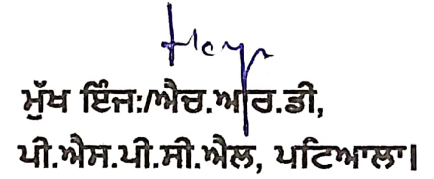 ਮੁੱਖ ਇੰਜ:/ਐਚ.ਆਰ.ਡੀ,
ਪੀ.ਐਸ.ਪੀ.ਸੀ.ਐਲ, ਪਟਿਆਲਾ।